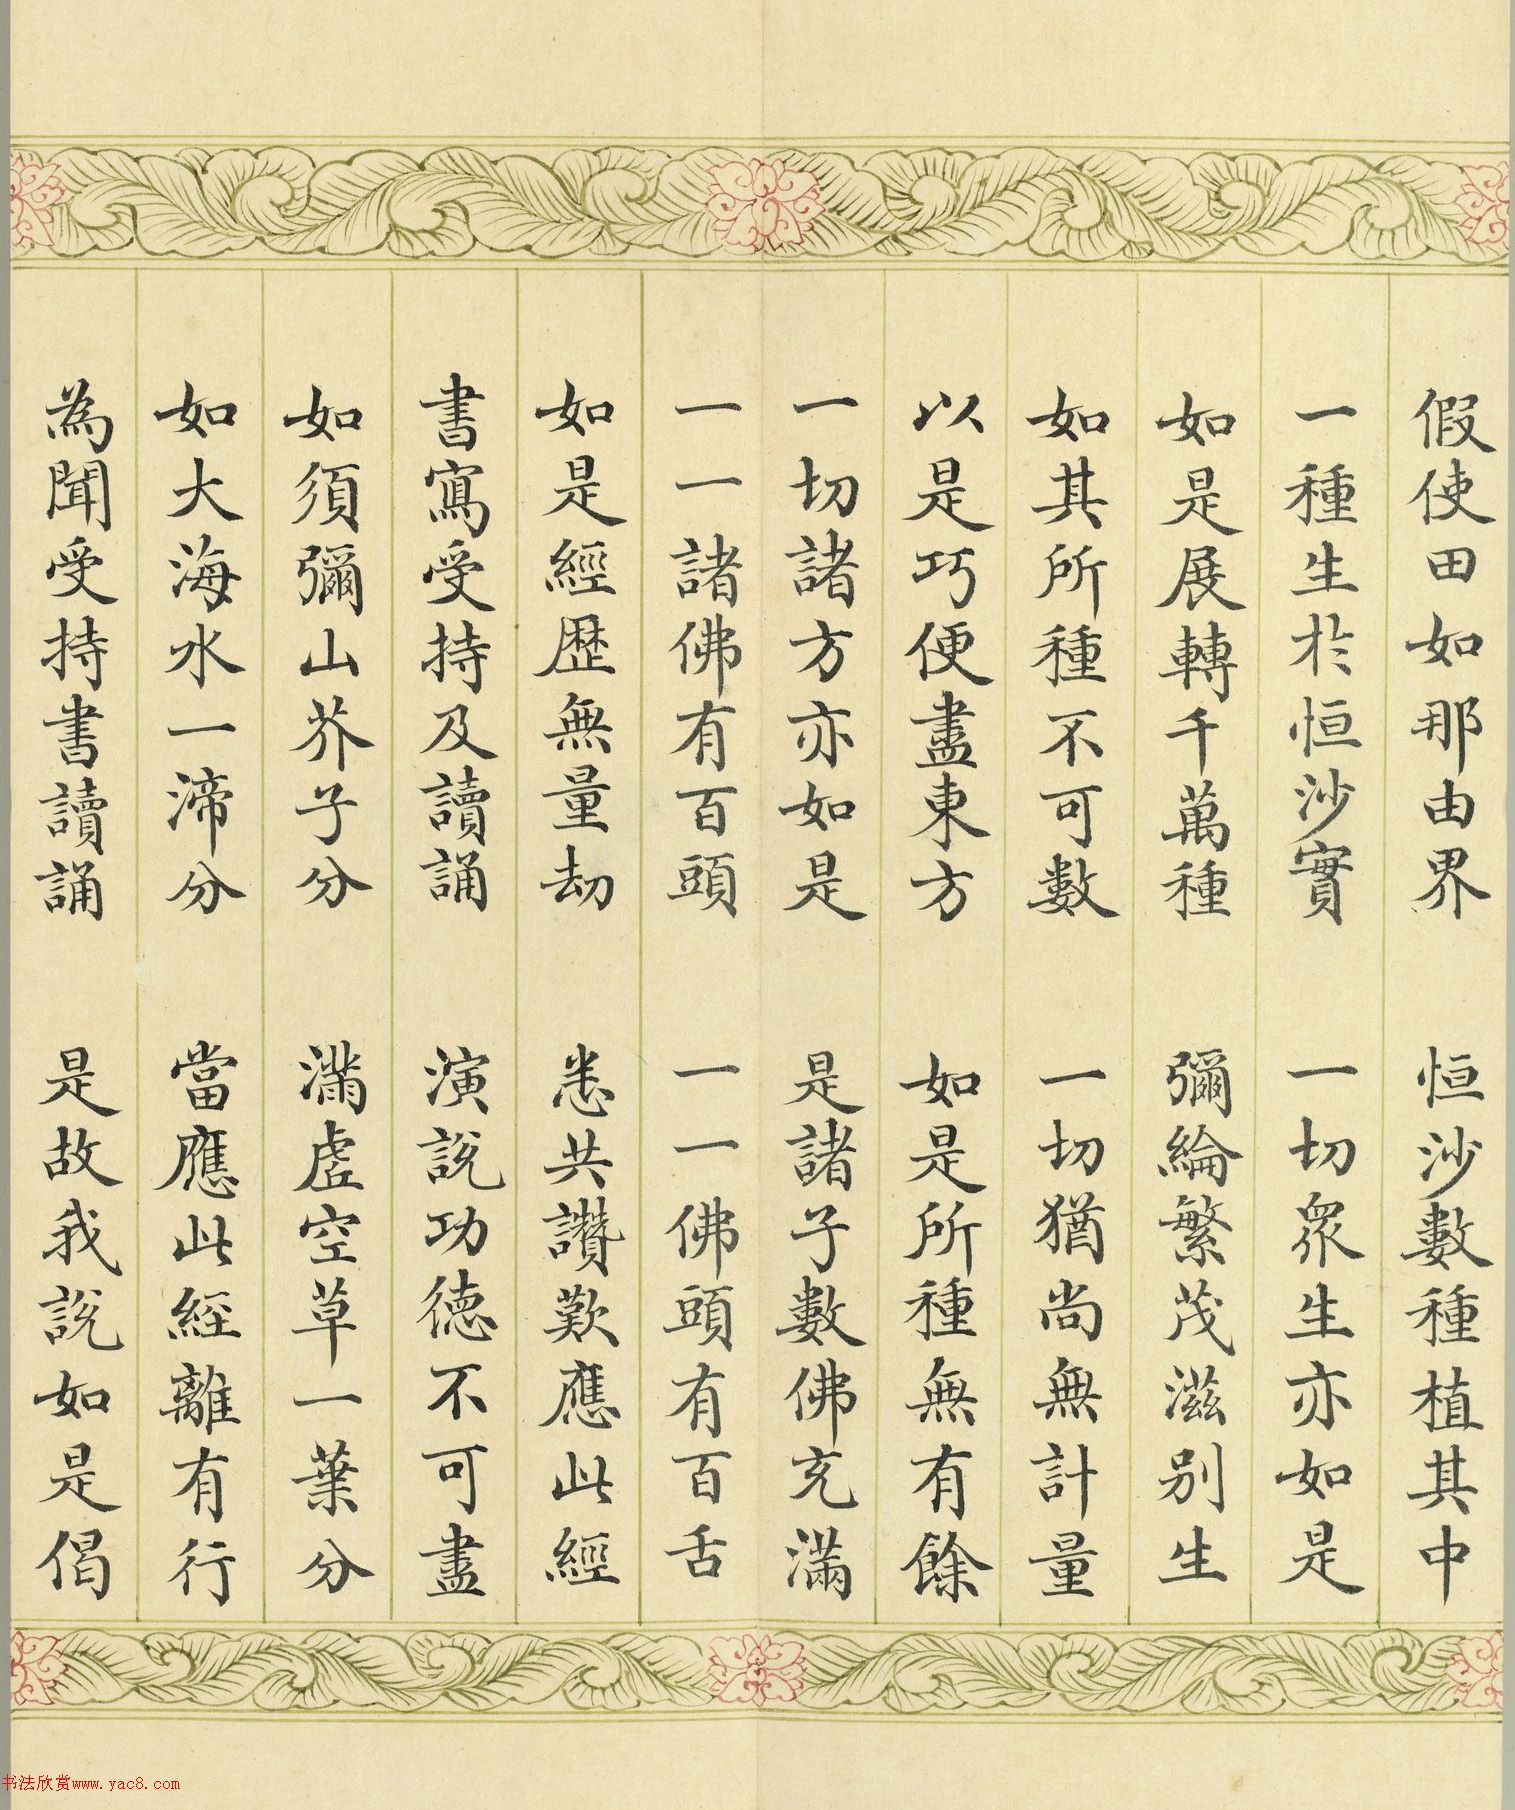 假使田如那由界 恒沙數種植其中
一種生於恒沙實 一切眾生亦如是
如是展轉千萬種 彌綸繁茂滋別生
如其所種不可數 一切猶尚無計量
以是巧便盡東方 如是所種無有餘
一切諸方亦如是 是諸子數佛充滿
一一諸佛有百頭 一一佛頭有百舌
如是經歷無量劫 悉共讚歎應此經
書寫受持及讀誦 演說功德不可盡
如須彌山芥子分 滿虛空草一葉分
如大海水一渧分 當應此經離有行
為聞受持書讀誦 是故我說如是偈
书法欣赏www.yac8.com